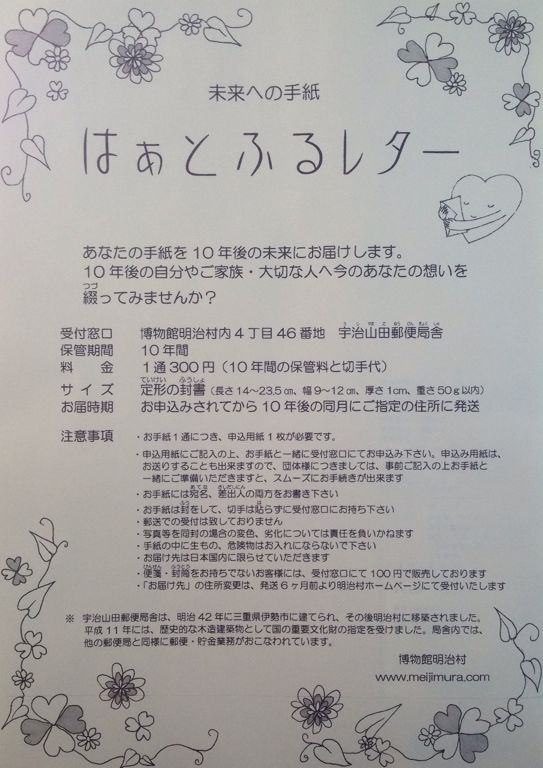 未来への手紙
はぁとふるレター
あなたの手紙を10年後の未来にお届けします。
10年後の自分やご家族・大切な人へ今のあなたの想いを
綴ってみませんか？
受付窓口　博物館明治村内4丁目46番地　宇治山田郵便局舎
保管期間　10年間
料　金　1通300円（10年間の保管料と切手代）
サイズ　定形の封書（長さ14～23.5㎝、幅9～12㎝、厚さ1cm、重さ50ｇ以内）
お届時期　お申込みされてから10年後の同月にご指定の住所に発送
注意事項　・お手紙1通につき、申込用紙1枚が必要です。
・申込用紙にご記入の上、お手紙と一緒に受付窓口にてお申込み下さい。申込み用紙は、
お送りすることも出来ますので、団体様につきましては、事前ご記入の上お手紙と
一緒にご準備いただきますと、スムーズにお手続きが出来ます
・お手紙には宛名、差出人の両方をお書き下さい
・お手紙は封をして、切手は貼らずに受付窓口にお持ち下さい
・郵送での受付は致しておりません
・写真等を同封の場合の変色、劣化については責任を負いかねます
・手紙の中に生もの、危険物はお入れにならないで下さい
・お届け先は日本国内に限らせていただきます
・便箋・封筒をお持ちでないお客様には、受付窓口にて100円で販売しております
・「お届け先」の住所変更は、発送6ヶ月前より明治村ホームページにて受付いたします
※　宇治山田郵便局舎は、明治42年に三重県伊勢市に建てられ、その後明治村に移築されました。
平成11年には、歴史的な木造建築物として国の重要文化財の指定を受けました。局舎内では、
他の郵便局と同様に郵便・貯金業務がおこなわれています。
博物館明治村
www.meijimura.com